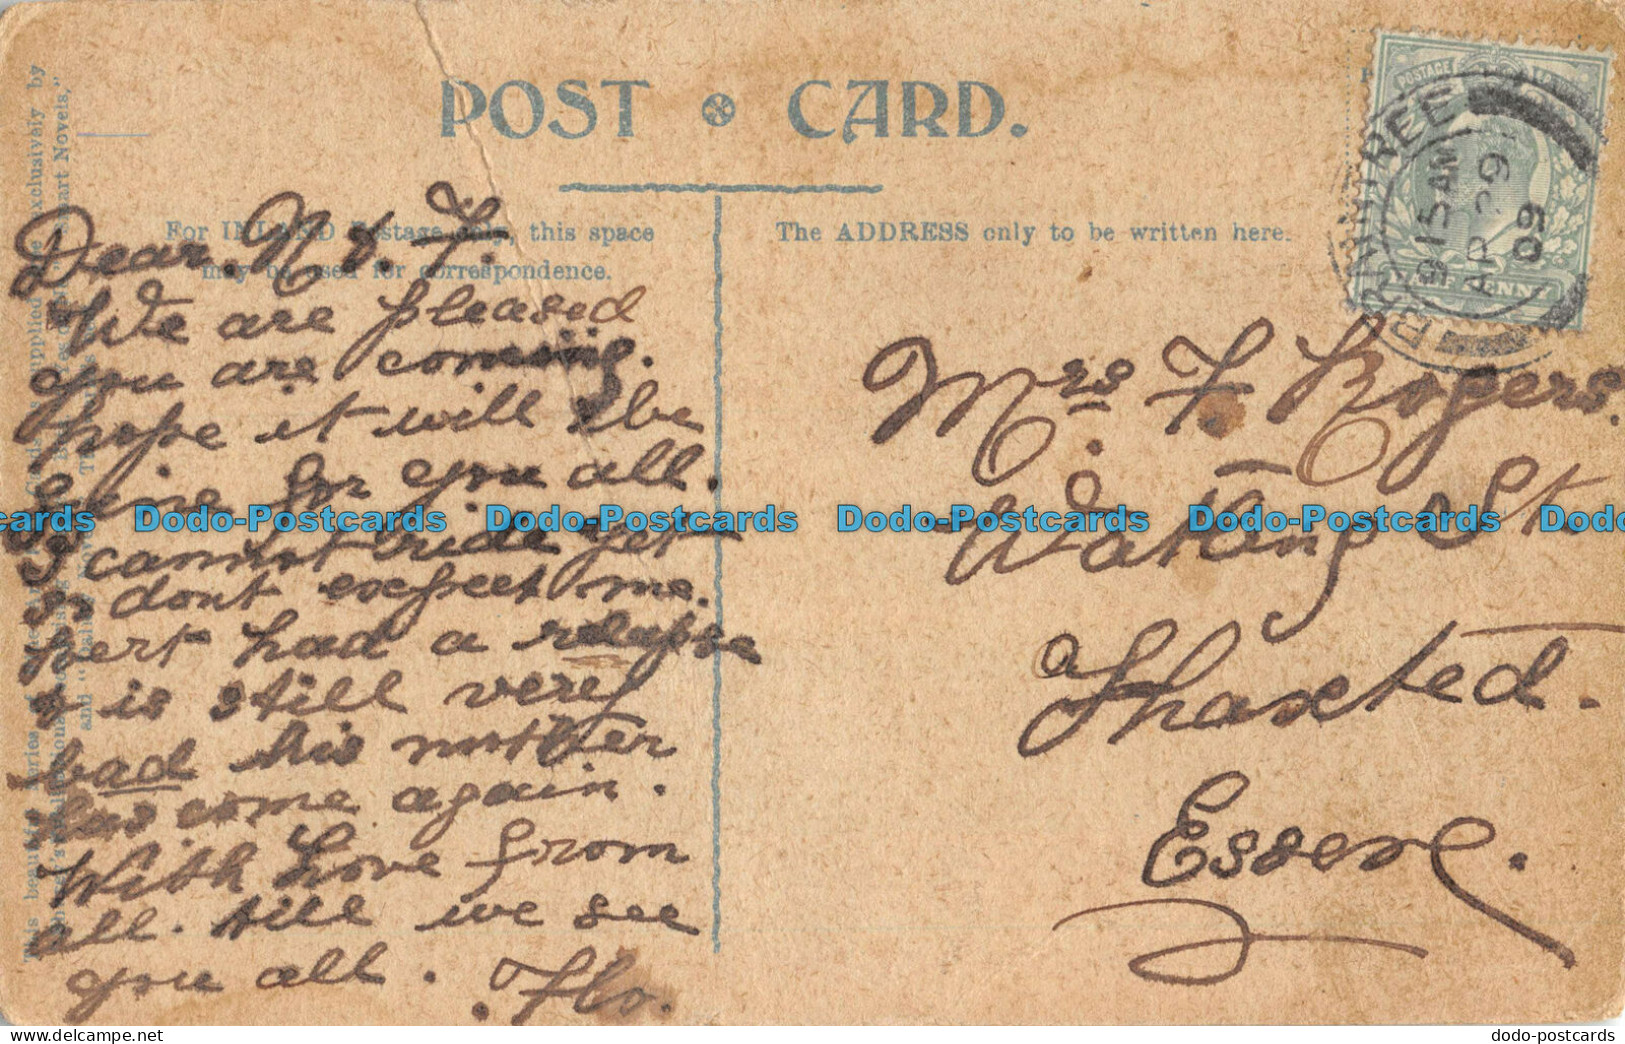 POST CARD.
For INLAND Postage only, this space
may be used for correspondence.
The ADDRESS only to be written here.
Dear N & F.
We are pleased
you are coming.
hope it will be
fine for you all.
I cannot ride yet
so dont expect me.
Bert had a relapse
& is still very
bad his mother
has come again.
With love from
all. till we see
you all.
Flo.
Mrs F. Rogers.
Watling St.
Thaxted.
Essex.
BRAINTREE
9 15 AM
AP 29
09
POSTAGE
HALF PENNY
This beautiful Series of Fine Art Post Cards is supplied free exclusively by
Smart Novels,"
and
Dodo-Postcards Dodo-Postcards Dodo-Postcards Dodo-Postcards
dodo-postcards
dodo-postcards.com